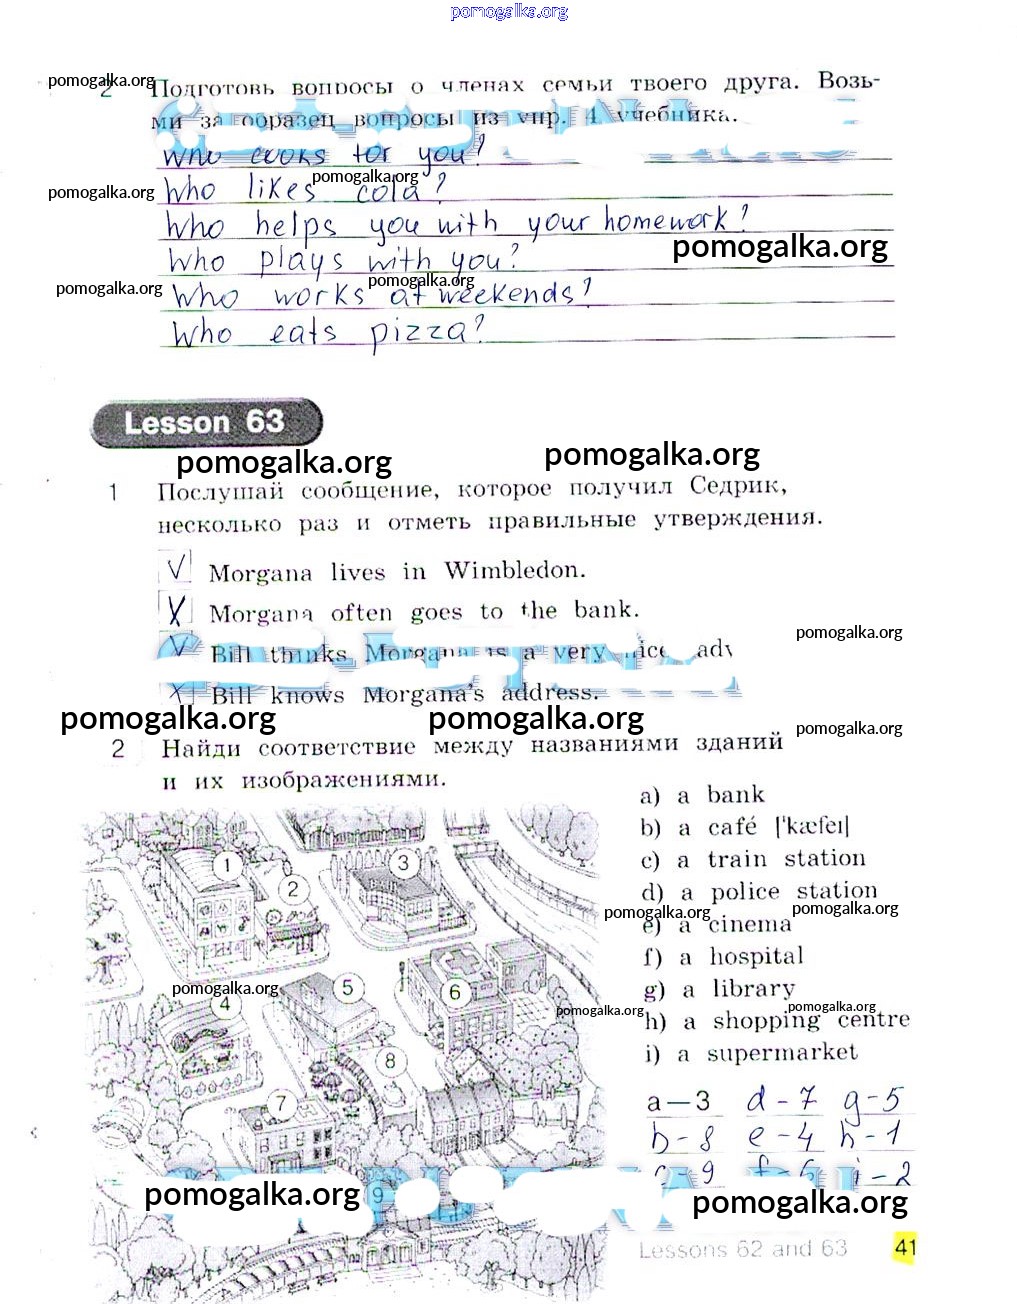 pomogalka.org
pomogalka.org
2 Подготовь вопросы о членах семьи твоего друга. Возь-
ми за образец вопросы из упр. 4 учебника.
Who cooks for you?
pomogalka.org
pomogalka.org
Who likes cola?
Who helps you with your homework?
pomogalka.org
Who plays with you?
pomogalka.org
pomogalka.org
Who works at weekends?
Who eats pizza?
Lesson 63
pomogalka.org
pomogalka.org
1 Послушай сообщение, которое получил Седрик,
несколько раз и отметь правильные утверждения.
V Morgana lives in Wimbledon.
X Morgana often goes to the bank.
pomogalka.org
V Bill thinks Morgana is a very
X Bill knows Morgana's address.
pomogalka.org
pomogalka.org
pomogalka.org
2 Найди соответствие между названиями зданий
и их изображениями.
a) a bank
b) a café ['kæfeɪ]
c) a train station
d) a police station
pomogalka.org
pomogalka.org
e) a cinema
f) a hospital
g) a library
pomogalka.org
pomogalka.org
h) a shopping centre
i) a supermarket
1
2
3
pomogalka.org
4
5
6
7
8
9
a — 3 d - 7 g - 5
b - 8 e - 4 h - 1
c - 9 f - 6 i - 2
pomogalka.org
pomogalka.org
Lessons 62 and 63 41